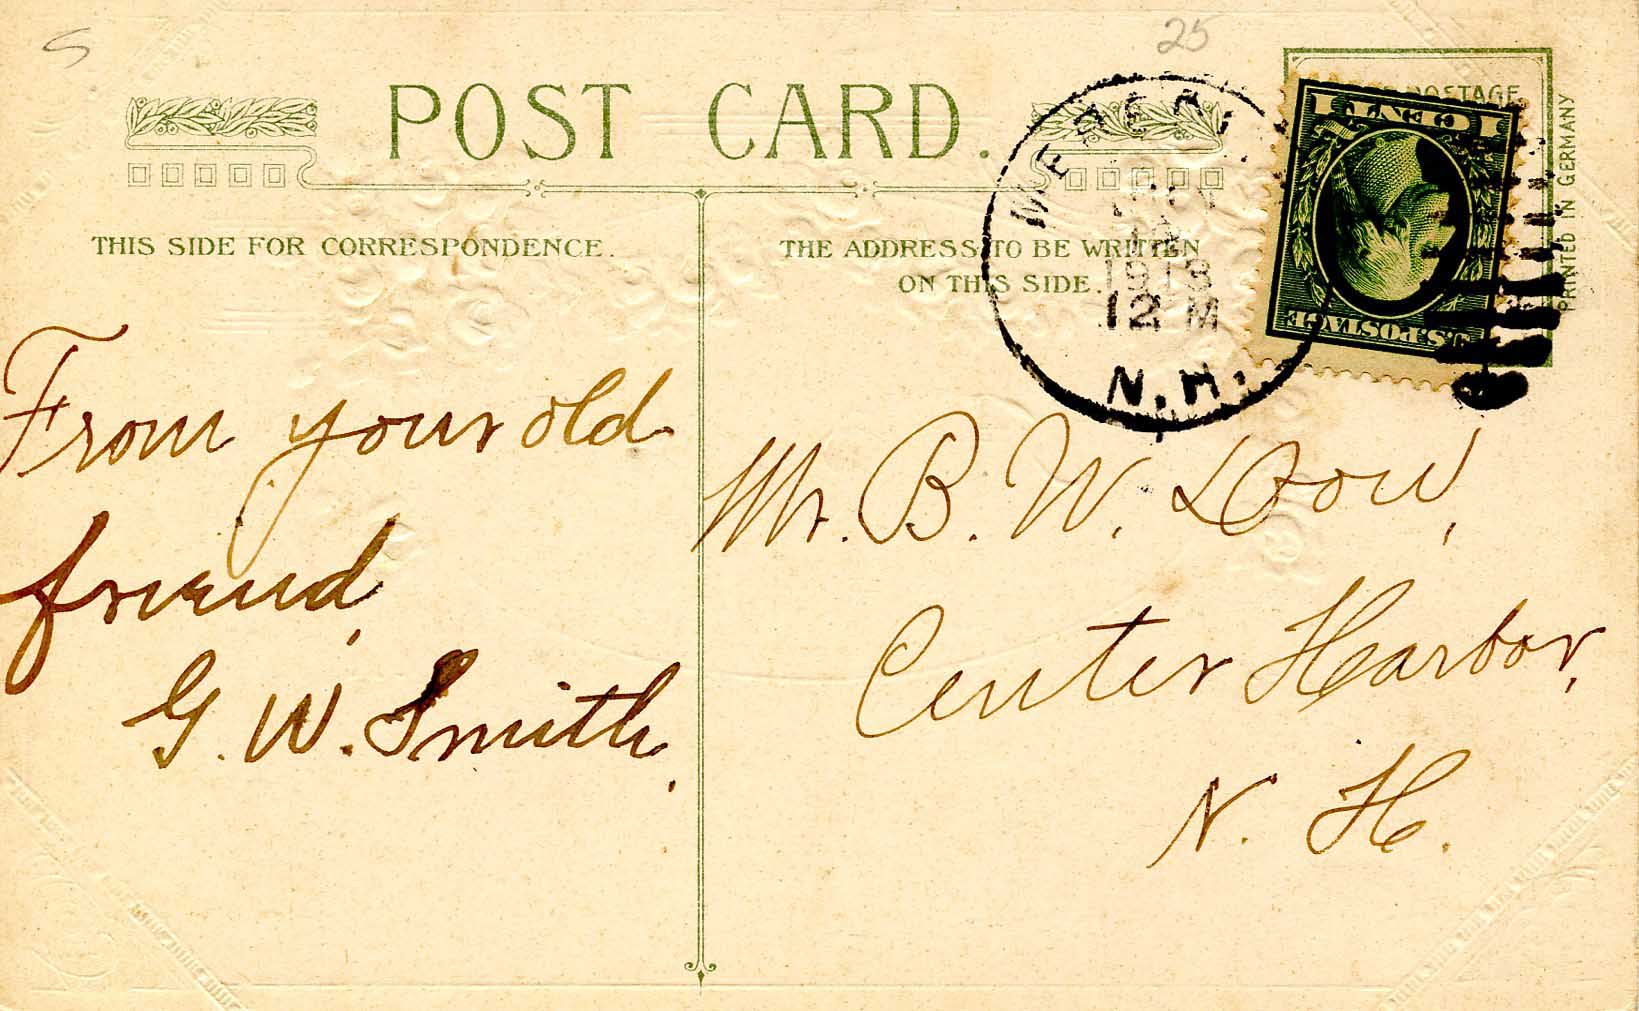 25
POST CARD.
THIS SIDE FOR CORRESPONDENCE.
THE ADDRESS TO BE WRITTEN
ON THIS SIDE.
1913
12 M
N.H.
POSTAGE
1 CENT 1
U.S. POSTAGE
PRINTED IN GERMANY
From your old
friend,
G. W. Smith.
Mr. B. W. Dow,
Center Harbor,
N. H.